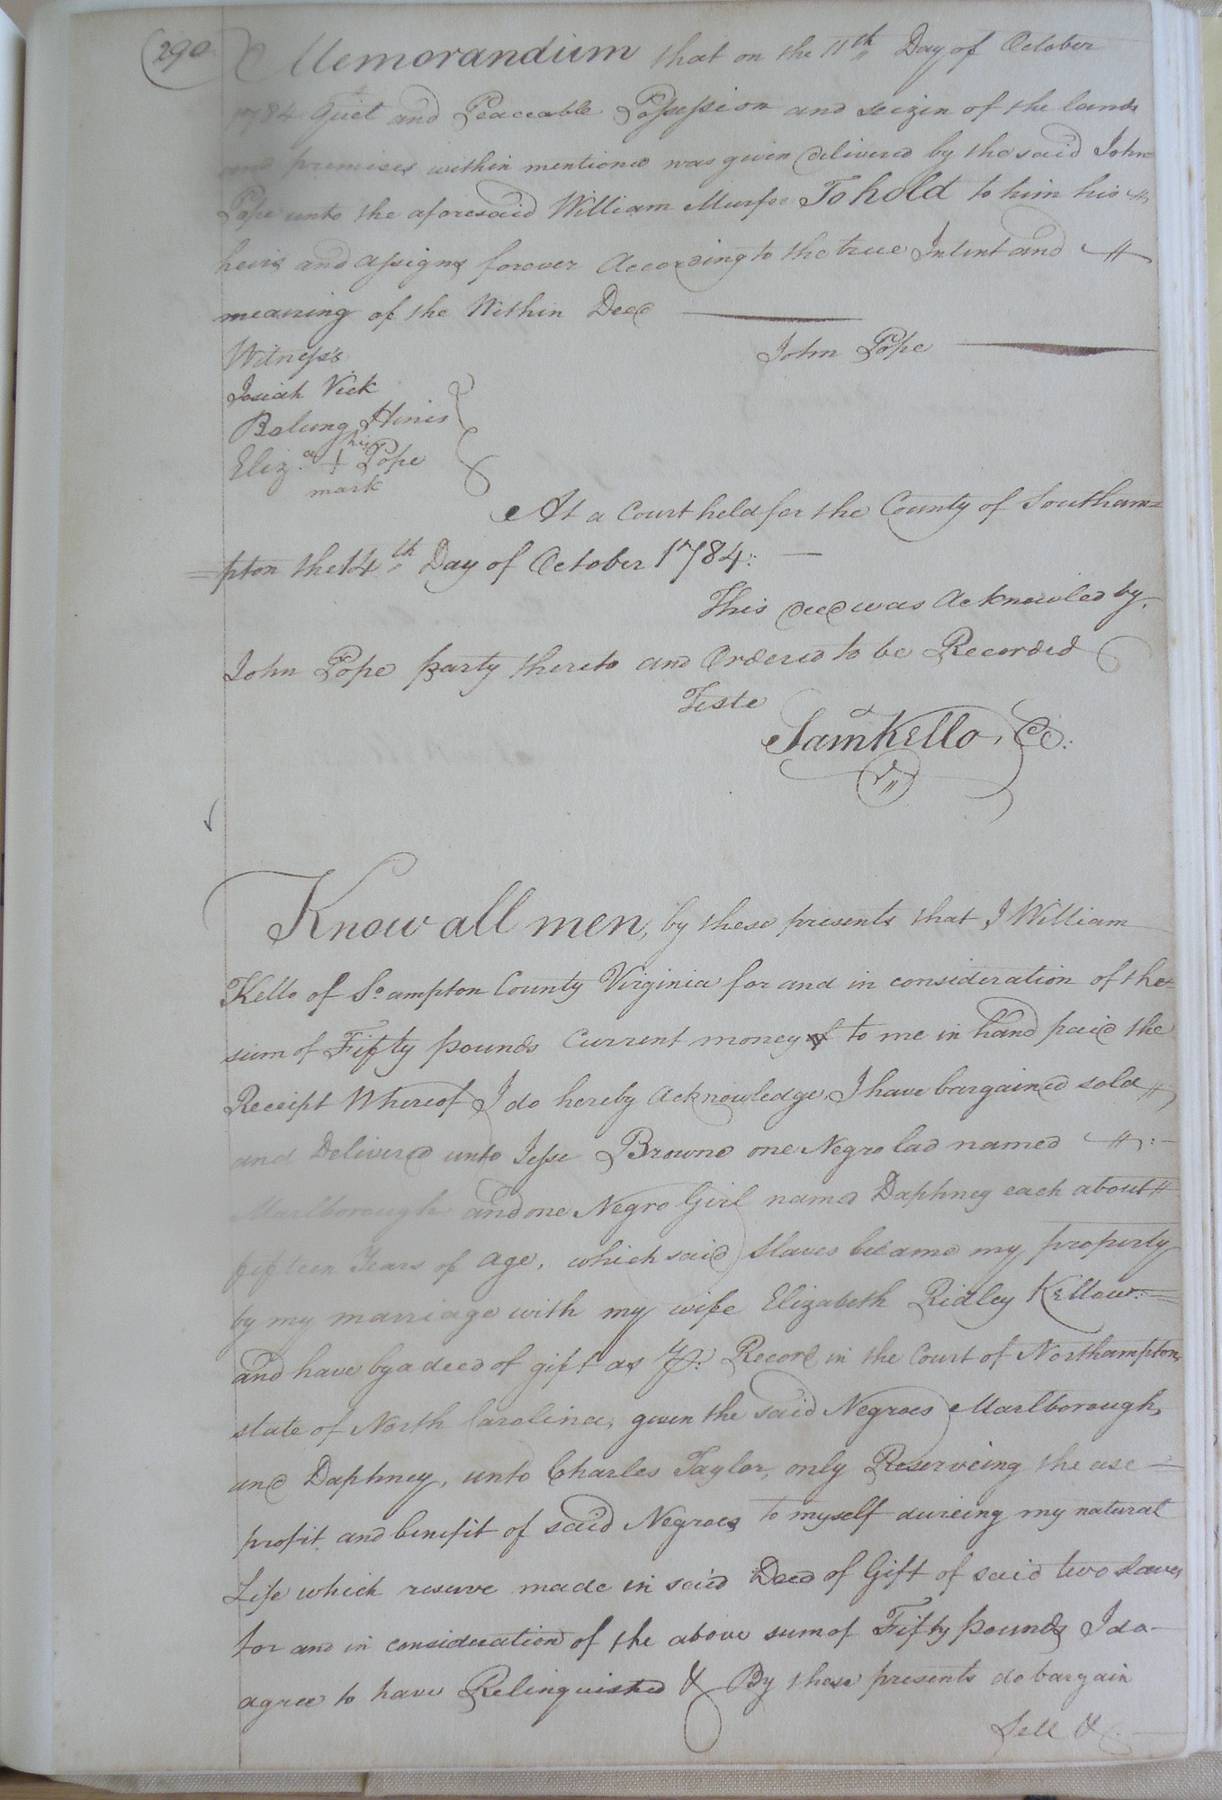 290
Memorandum that on the 11th Day of October
1784 Quiet and Peaceable Possession and seizin of the lands
and premises within mentioned was given delivered by the said John
Pope unto the aforesaid William Murfee To hold to him his
heirs and assigns forever According to the true Intent and
meaning of the Within Deed
John Pope
Witness
Josiah Vick
Bolung Hines
his
Eliz.a + Pope
mark
At a Court held for the County of Southam=
=pton the 14th Day of October 1784:
This deed was Acknowled by
John Pope party thereto and Ordered to be Recorded
Teste
Saml Kello, CC:
Know all men, by these presents that I William
Kello of So.ampton County Virginia for and in consideration of the
sum of Fifty pounds Current money to me in hand paid the
Receipt Whereof I do hereby Acknowledge I have bargained sold
and Delivered unto Jesse Browne one Negro lad named
Marlborough and one Negro Girl named Daphney each about
fifteen Years of age, which said Slaves became my property
by my marriage with my wife Elizabeth Ridley Kellow:=
and have by a deed of gift as Record in the Court of Northampton
state of North Carolina, given the said Negroes Marlborough,
and Daphney, unto Charles Taylor, only Reserveing the use
profit and benifit of said Negroes to myself dureing my natural
Life which reserve made in said Deed of Gift of said two slaves
for and in consideration of the above sum of Fifty pounds I do
agree to have Relinquished & By these presents do bargain
Sell &c.